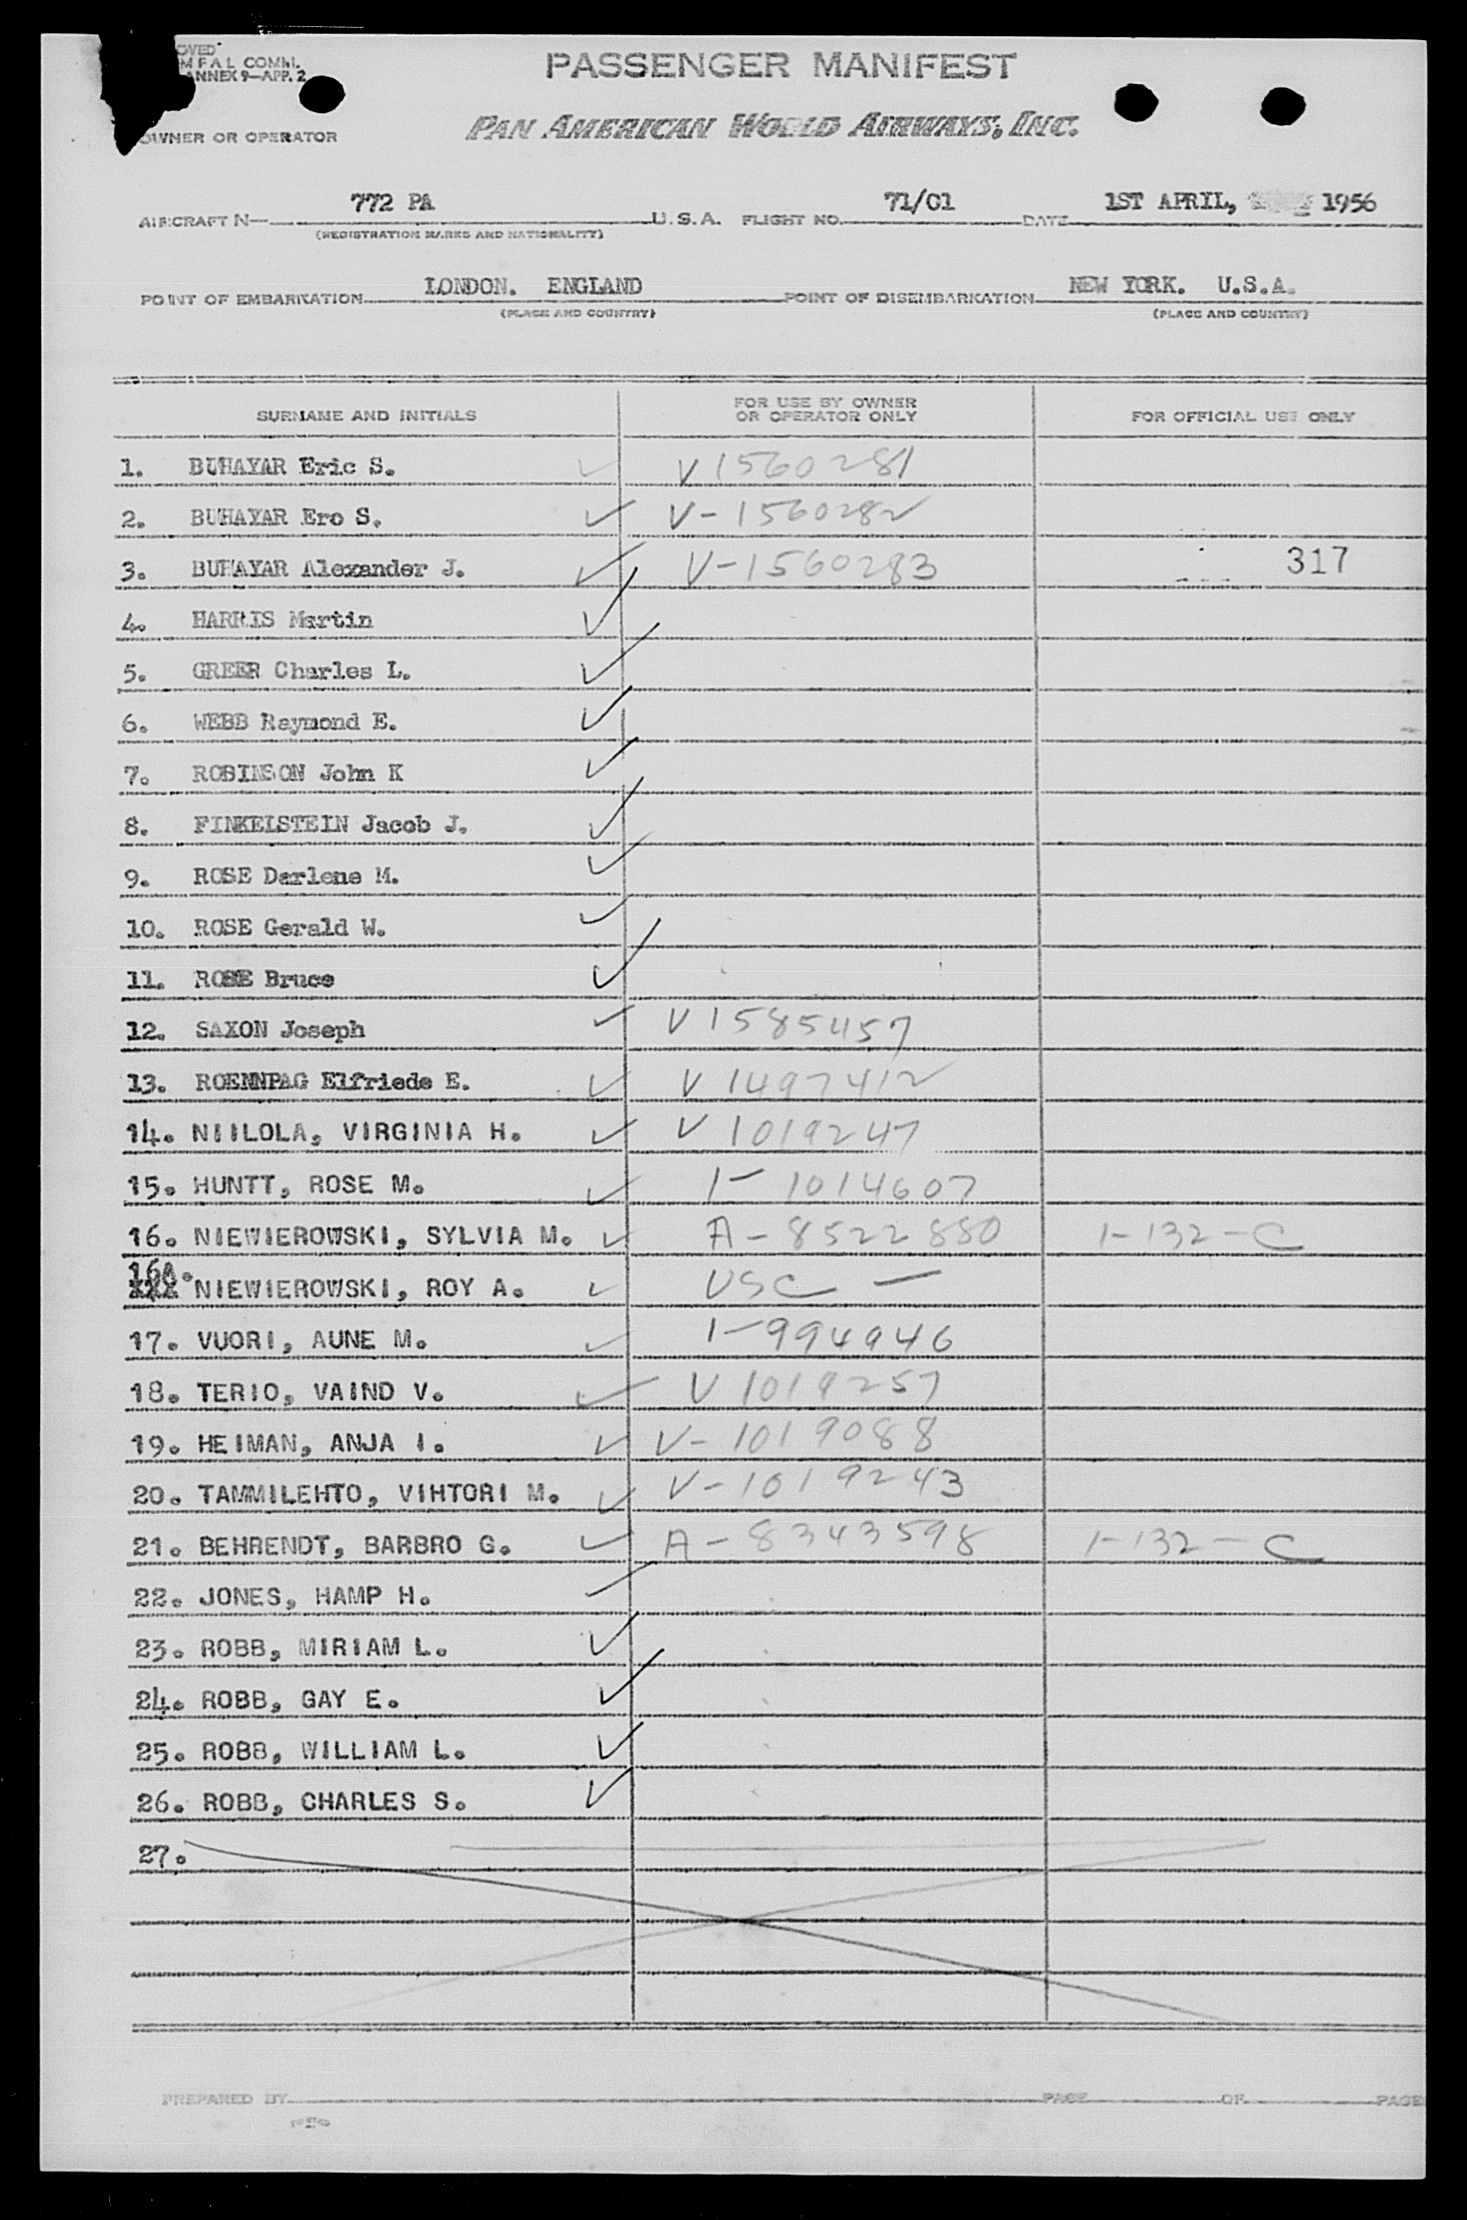 OVED
M F A L COMM.
ANNEX 9—APP. 2
PASSENGER MANIFEST
OWNER OR OPERATOR PAN AMERICAN WORLD AIRWAYS, INC.
AIRCRAFT N— 772 PA U.S.A. FLIGHT NO. 71/01 DATE 1ST APRIL, 1956
(REGISTRATION MARKS AND NATIONALITY)
POINT OF EMBARKATION LONDON. ENGLAND POINT OF DISEMBARKATION NEW YORK. U.S.A.
(PLACE AND COUNTRY) (PLACE AND COUNTRY)
SURNAME AND INITIALS FOR USE BY OWNER OR OPERATOR ONLY FOR OFFICIAL USE ONLY
1. BUHAYAR Eric S. V1560281
2. BUHAYAR Ero S. V-1560282
3. BUHAYAR Alexander J. V-1560283 317
4. HARRIS Martin
5. GREER Charles L.
6. WEBB Raymond E.
7. ROBINSON John K
8. FINKELSTEIN Jacob J.
9. ROSE Darlene M.
10. ROSE Gerald W.
11. ROSE Bruce
12. SAXON Joseph V1585457
13. ROENNPAG Elfriede E. V1497412
14. NIILOLA, VIRGINIA H. V1019247
15. HUNTT, ROSE M. 1-1014607
16. NIEWIEROWSKI, SYLVIA M. A-8522880 1-132-C
16A. NIEWIEROWSKI, ROY A. USC —
17. VUORI, AUNE M. 1-994946
18. TERIO, VAIND V. V1019257
19. HEIMAN, ANJA I. V-1019088
20. TAMMILEHTO, VIHTORI M. V-1019243
21. BEHRENDT, BARBRO G. A-8343598 1-132-C
22. JONES, HAMP H.
23. ROBB, MIRIAM L.
24. ROBB, GAY E.
25. ROBB, WILLIAM L.
26. ROBB, CHARLES S.
27.
PREPARED BY PAGE OF PAGE